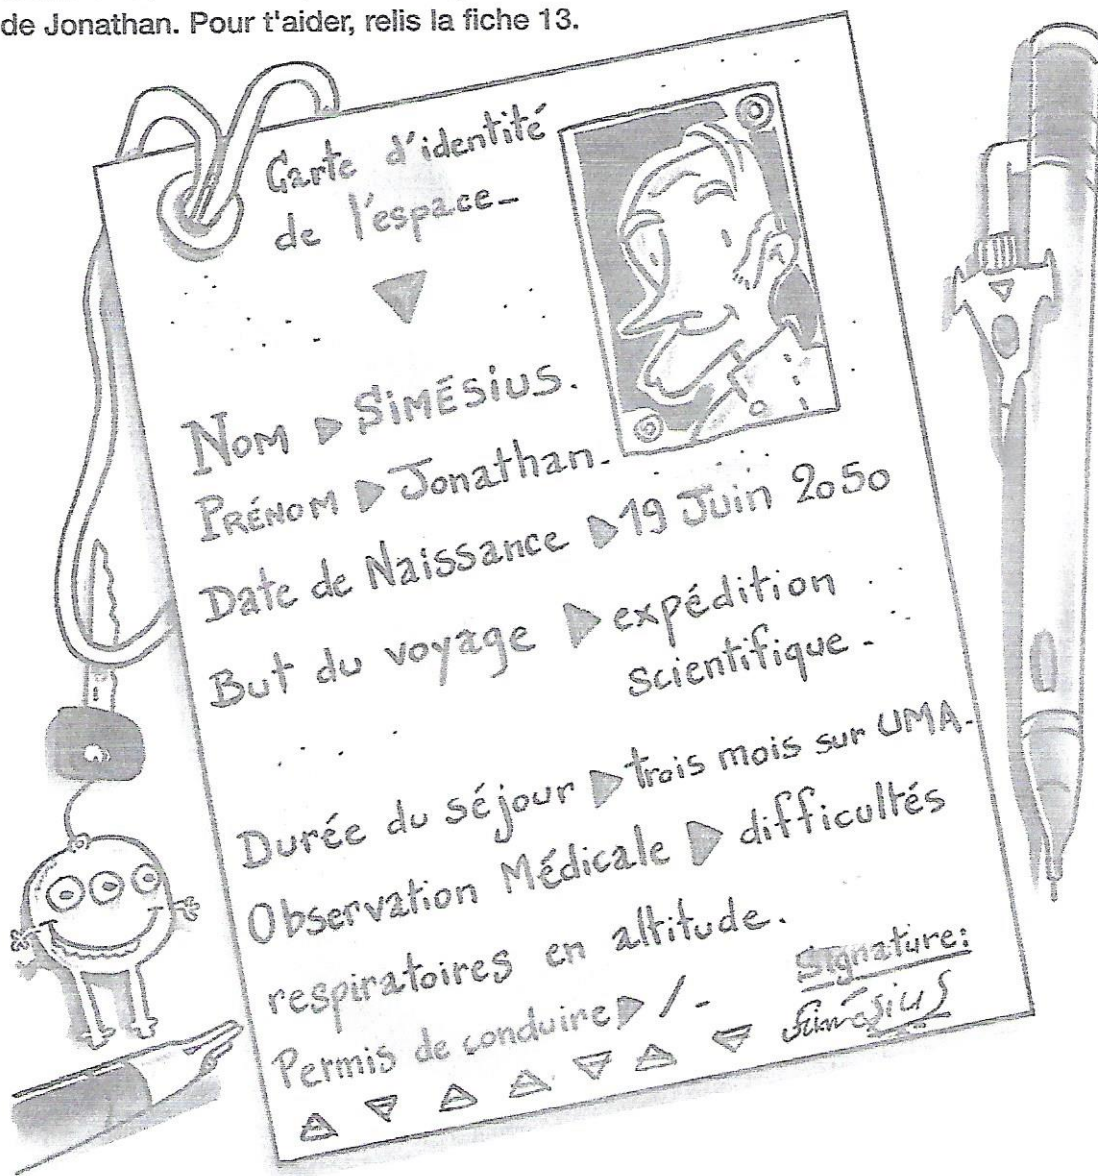 de Jonathan. Pour t'aider, relis la fiche 13.
Carte d'identité
de l'espace-
Nom ▶ SIMÉSIUS.
PRÉNOM ▶ Jonathan.
Date de Naissance ▶ 19 Juin 2050
But du voyage ▶ expédition
scientifique.
Durée du séjour ▶ trois mois sur UMA.
Observation Médicale ▶ difficultés
respiratoires en altitude.
Permis de conduire ▶ / -
Signature:
Simésius